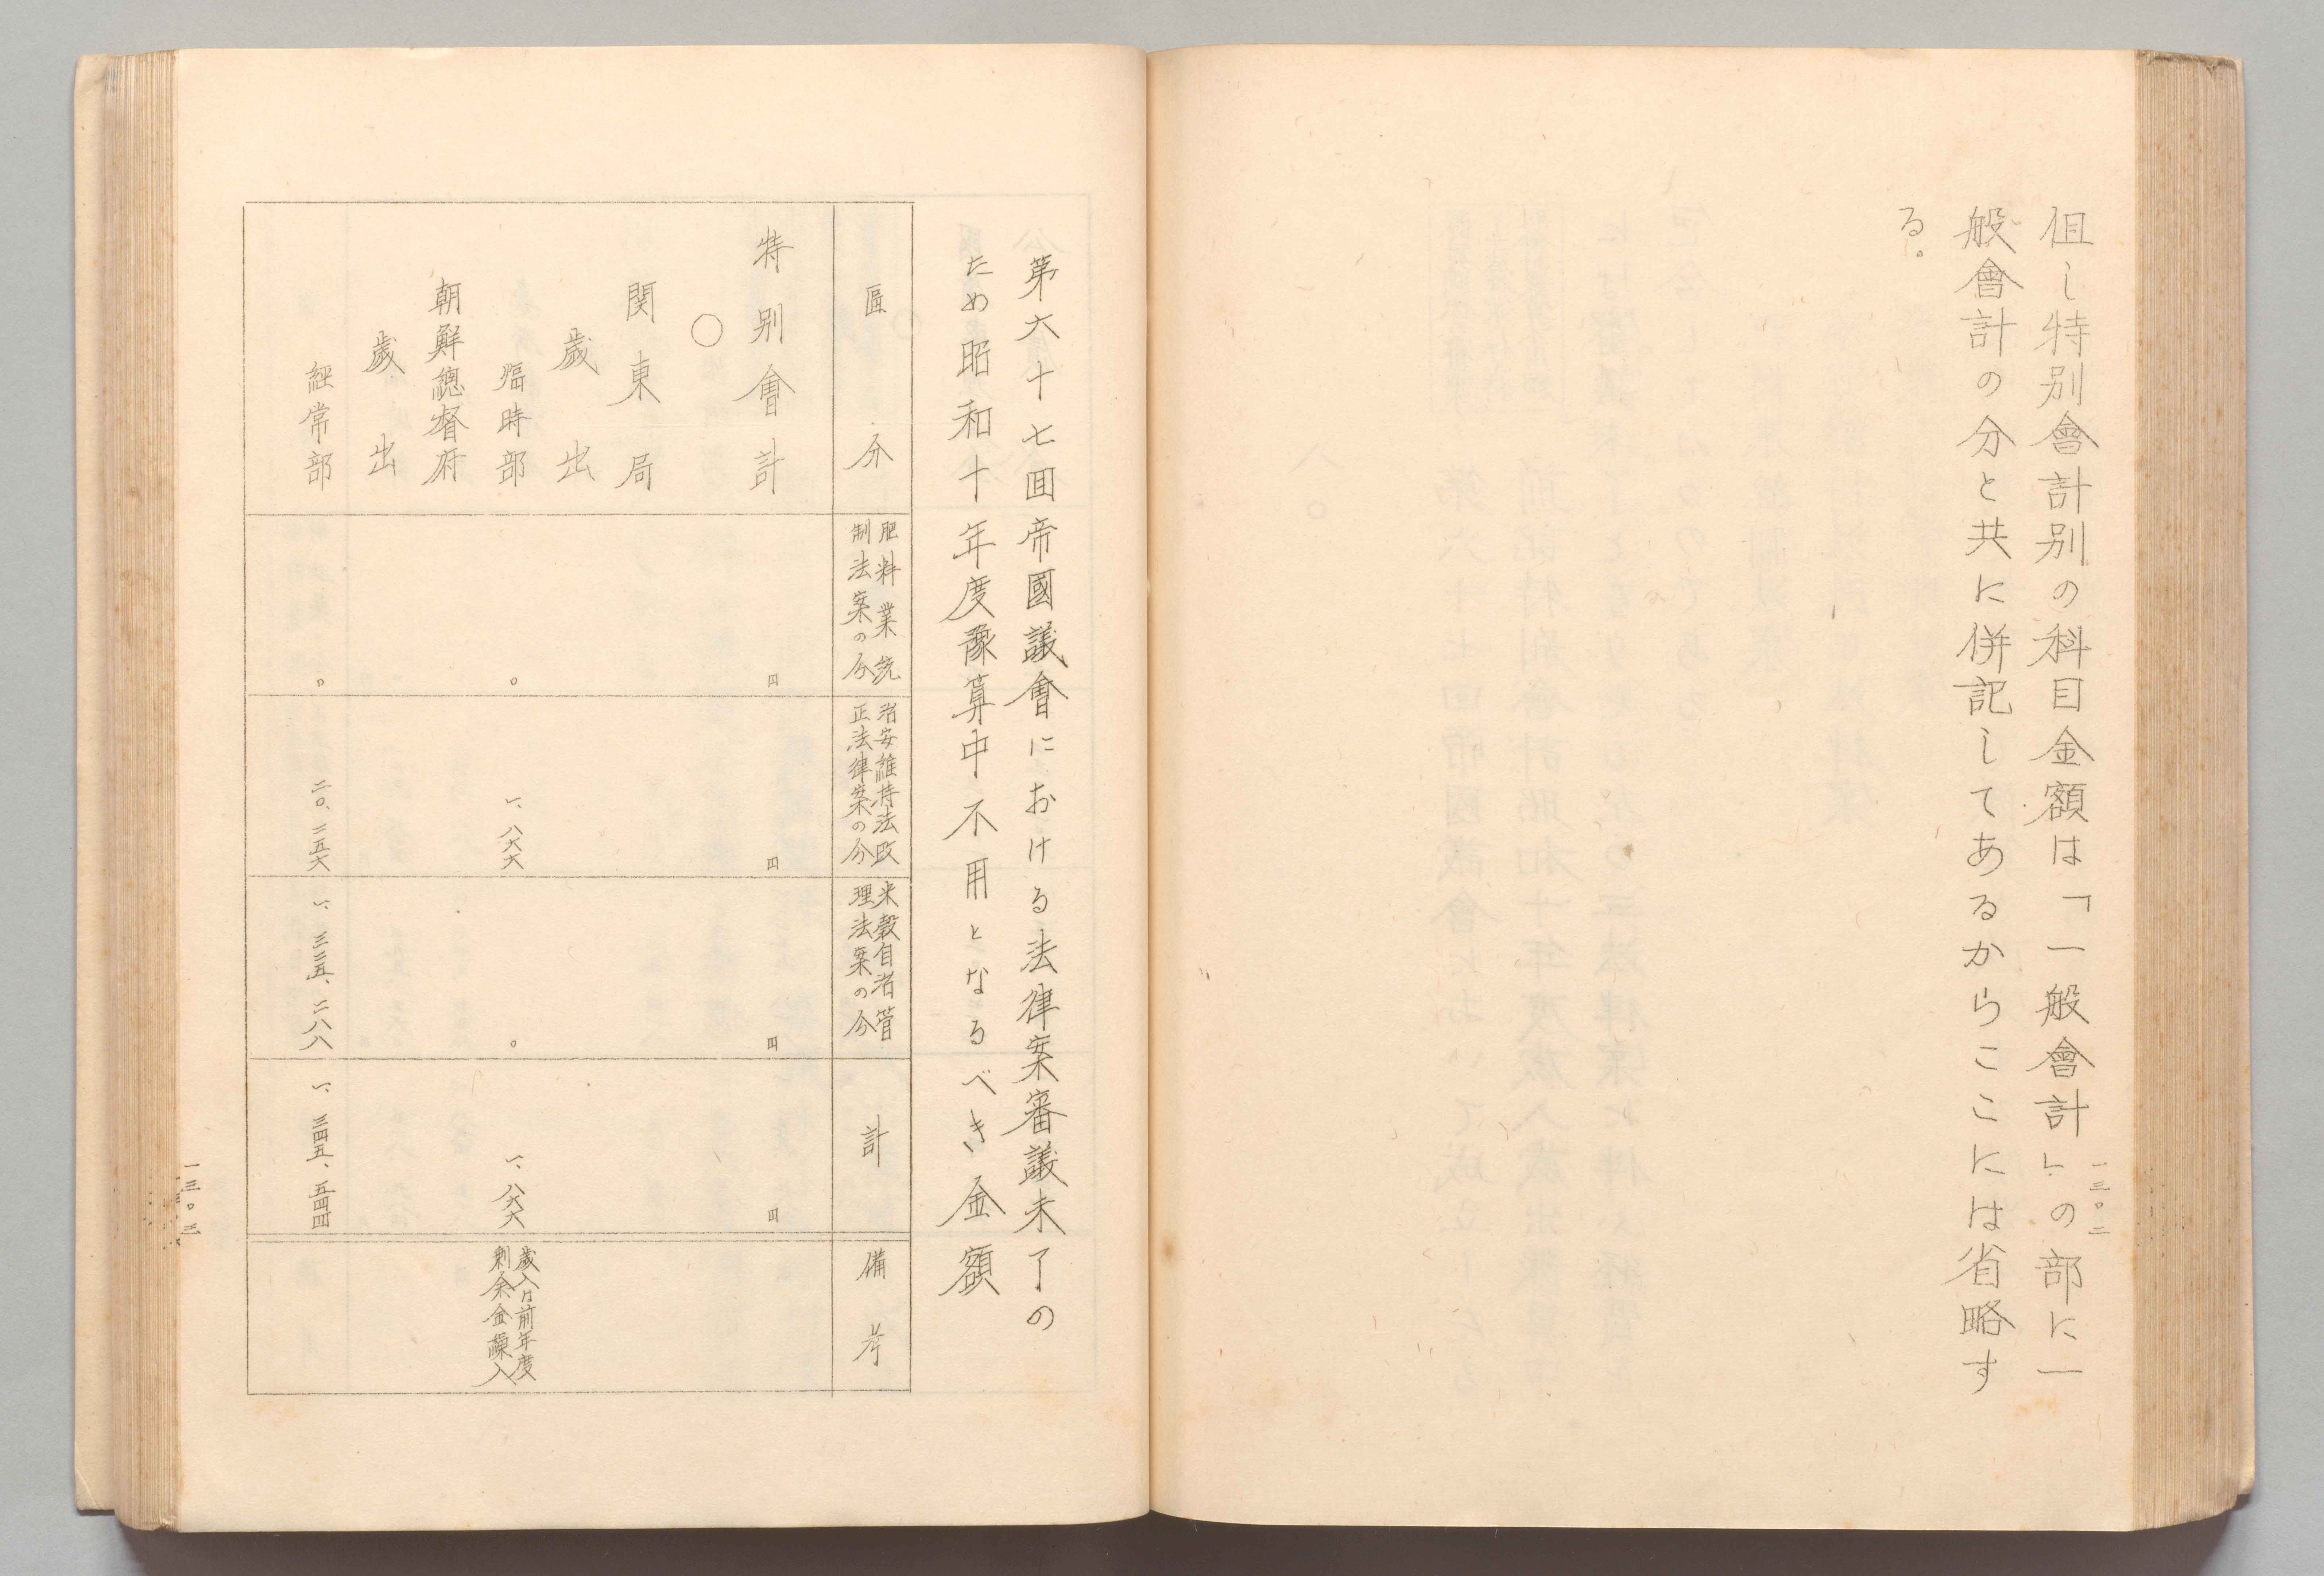 一三〇二
但し特別會計別の科目金額は「一般會計」の部に一
般會計の分と共に併記してあるからここには省略す
る。
第六十七囘帝國議會における法律案審議未了の
ため昭和十年度豫算中不用となるべき金額
區分
肥料業統
制法案の分
治安維持法改
正法律案の分
米穀自治管
理法案の分
計
備考
特別會計
円
円
円
円
〇
関東局
歳出
臨時部
〇
一、八六六
〇
一、八六六
歳入は前年度
剰余金繰入
朝鮮總督府
歳出
経常部
〇
二〇、二五六
一、三二五、二八八
一、三四五、五四四
一三〇三